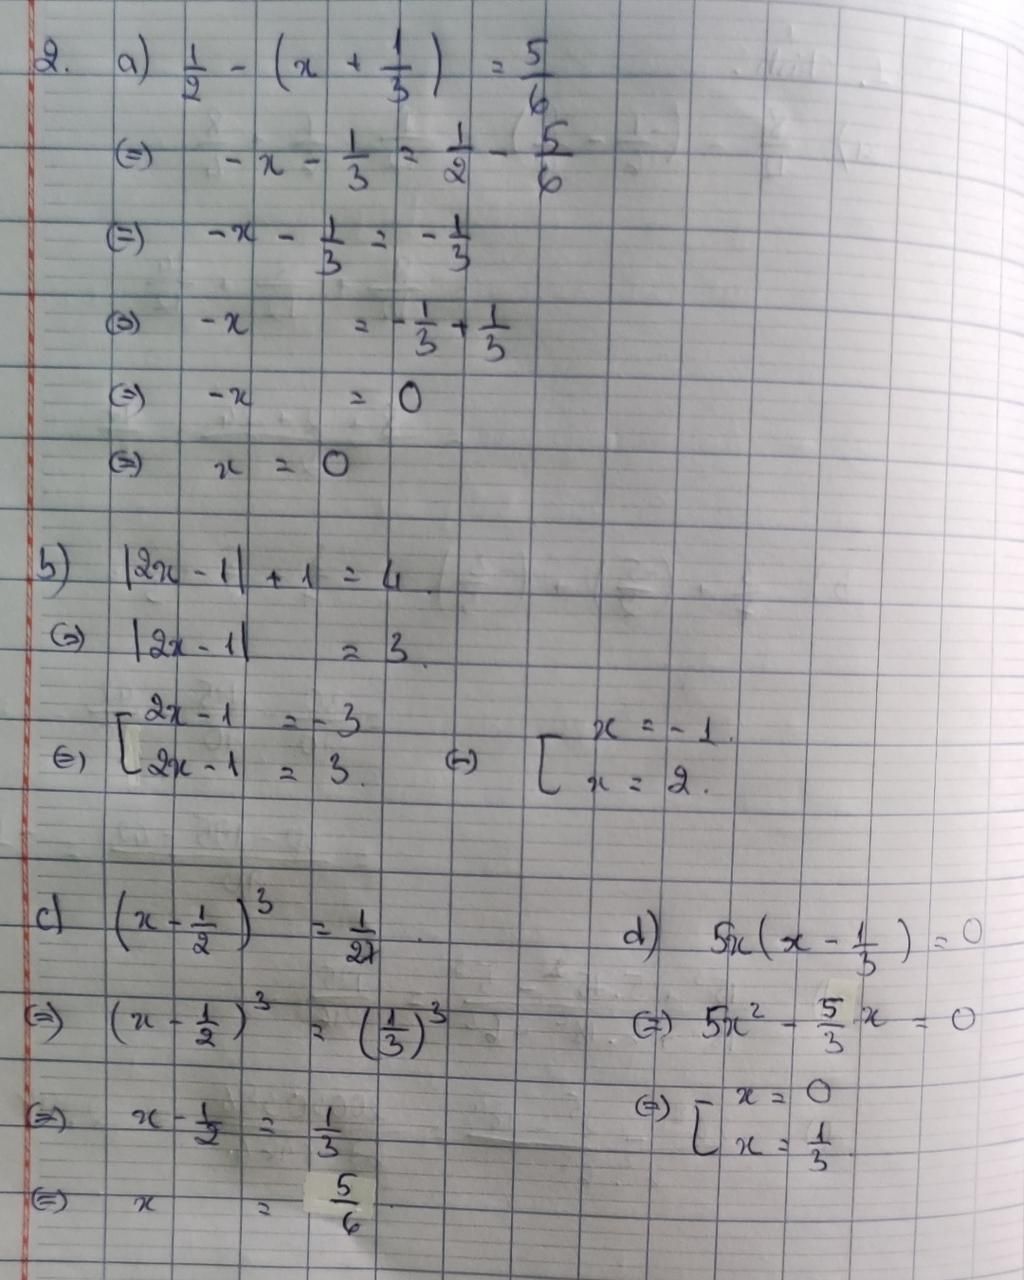 2. a) 1/2 - (x + 1/3) = 5/6
(=) -x - 1/3 = 1/2 - 5/6
(=) -x - 1/3 = -1/3
(=) -x = -1/3 + 1/3
(=) -x = 0
(=) x = 0
b) |2x - 1| + 1 = 4.
(=) |2x - 1| = 3.
(=) [ 2x - 1 = -3
2x - 1 = 3. (=) [ x = -1.
x = 2.
c) (x - 1/2)³ = 1/27.
(=) (x - 1/2)³ = (1/3)³
(=) x - 1/2 = 1/3
(=) x = 5/6
d) 5x(x - 1/3) = 0
(=) 5x² - 5/3 x = 0
(=) [ x = 0
x = 1/3